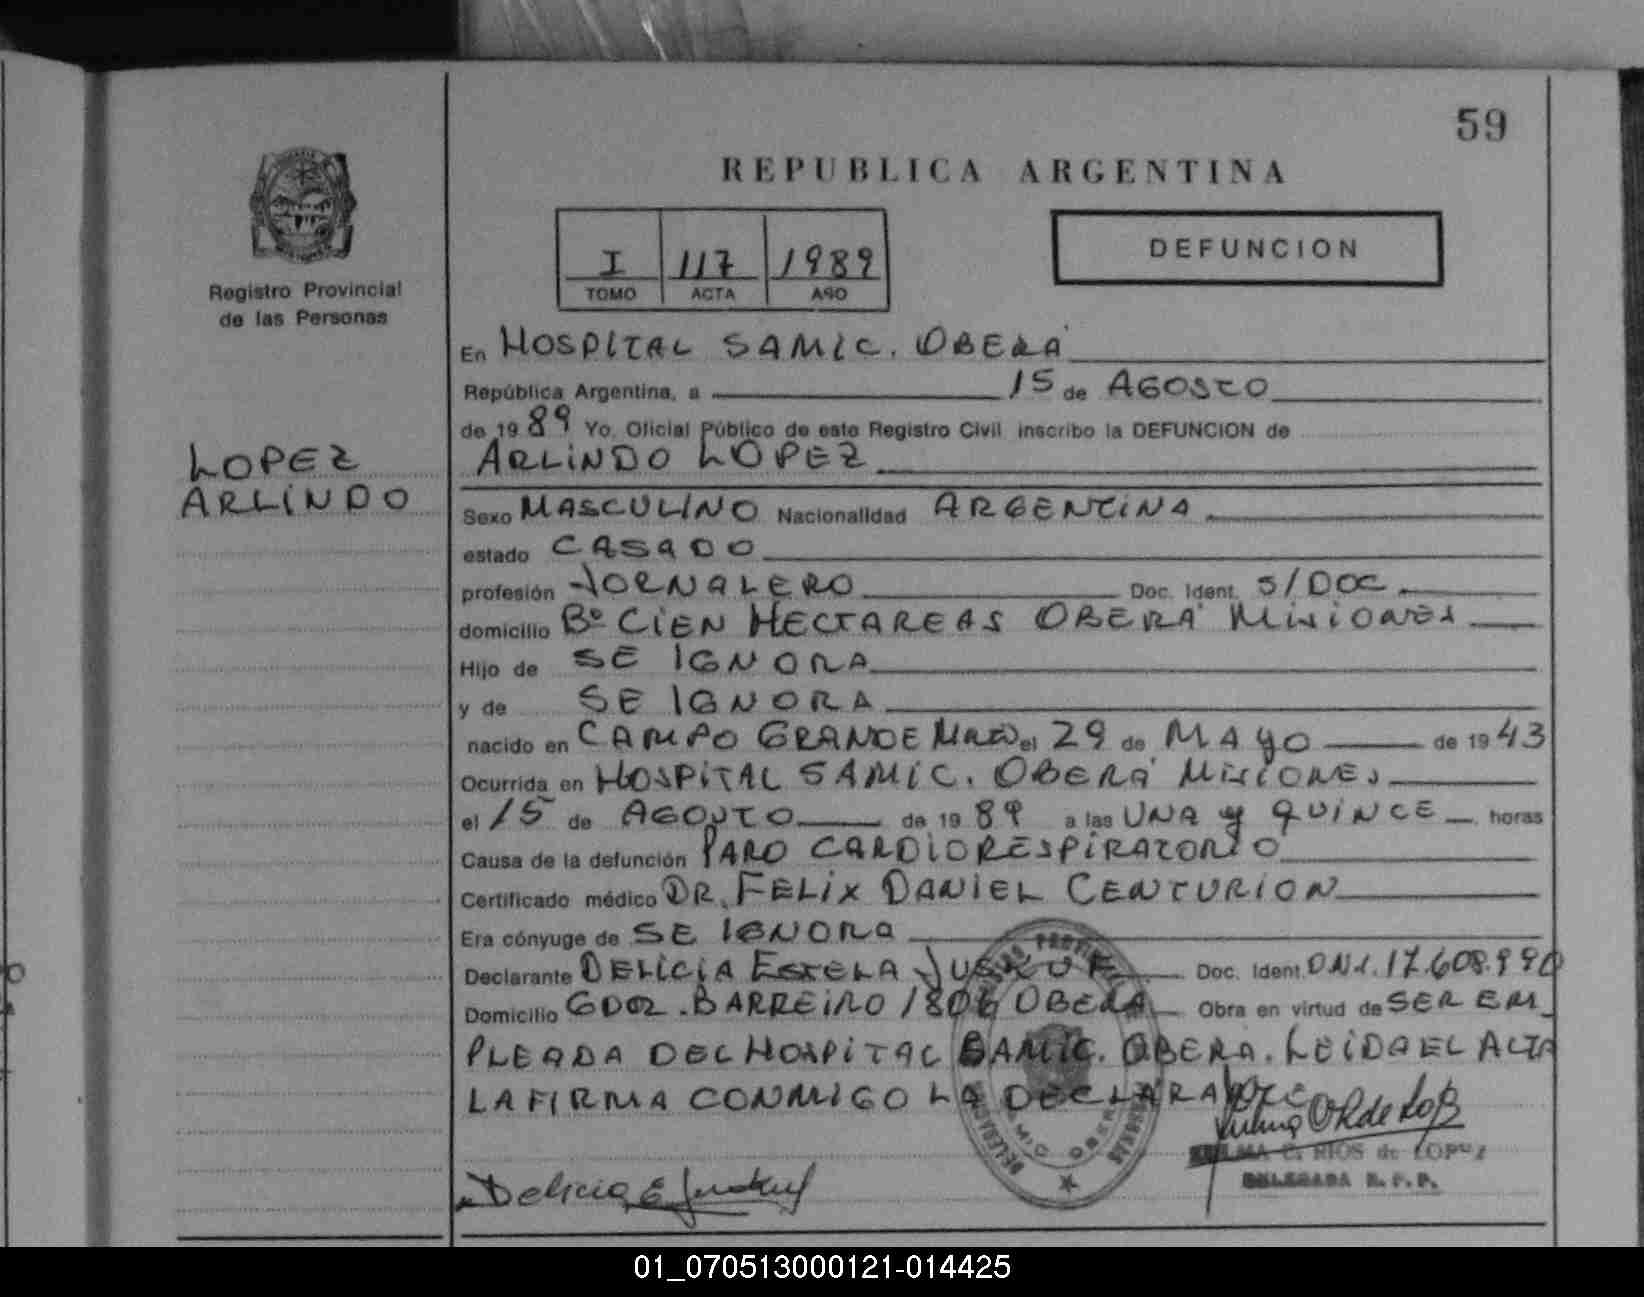 59
REPUBLICA ARGENTINA
I 117 1989
TOMO ACTA AÑO
DEFUNCION
Registro Provincial
de las Personas
LOPEZ
ARLINDO
En HOSPITAL SAMIC. OBERÁ
República Argentina, a 15 de AGOSTO
de 1989 Yo, Oficial Público de este Registro Civil inscribo la DEFUNCION de
ARLINDO LOPEZ
Sexo MASCULINO Nacionalidad ARGENTINA
estado CASADO
profesión JORNALERO Doc. Ident. S/DOC
domicilio Bº CIEN HECTAREAS OBERÁ MISIONES
Hijo de SE IGNORA
y de SE IGNORA
nacido en CAMPO GRANDE el 29 de MAYO de 1943
Ocurrida en HOSPITAL SAMIC. OBERÁ MISIONES
el 15 de AGOSTO de 1989 a las UNA y QUINCE horas
Causa de la defunción PARO CARDIORESPIRATORIO
Certificado médico DR. FELIX DANIEL CENTURION
Era cónyuge de SE IGNORA
Declarante DELICIA ESTELA Doc. Ident. DNI. 17.608.990
Domicilio GDOR. BARREIRO 1806 OBERA Obra en virtud de SER EM
PLEADA DEL HOSPITAL SAMIC. OBERA. LEIDA EL ACTA
LA FIRMA CONMIGO LA DECLARANTE
Delicia E
C. RIOS de LOPEZ
DELEGADA R.P.P.
01_070513000121-014425